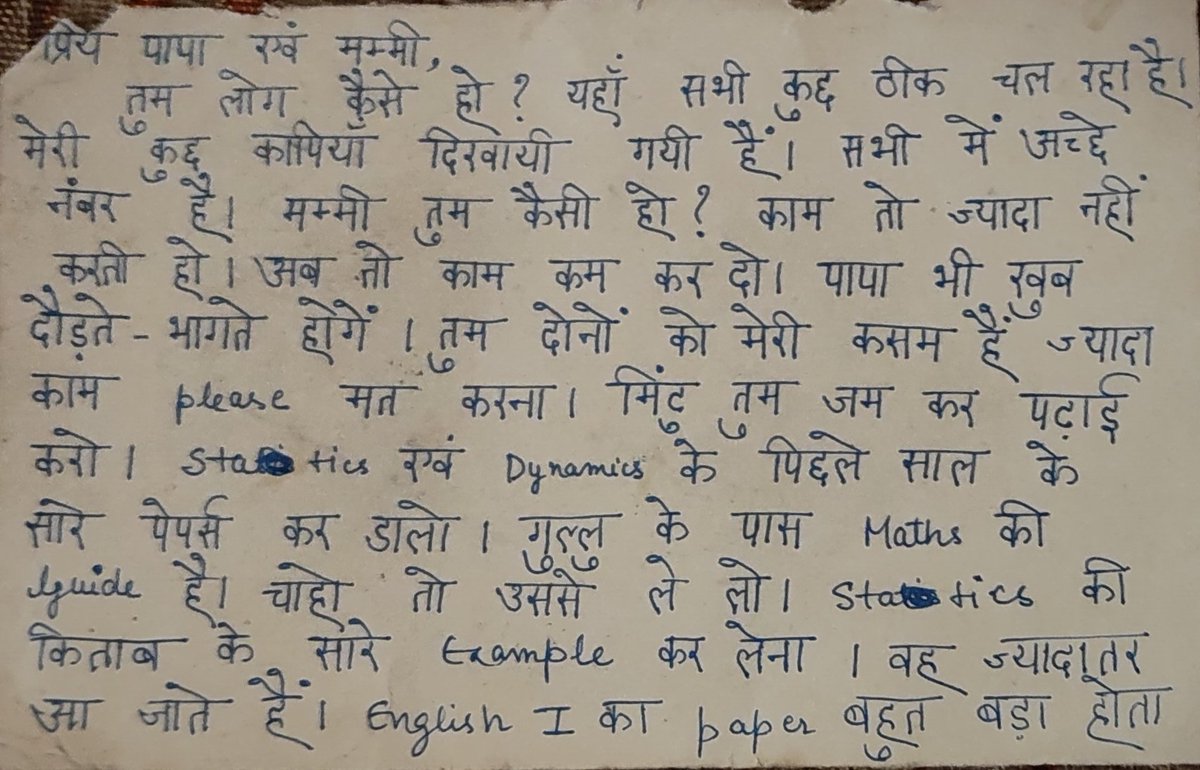 प्रिय पापा एवं मम्मी,
तुम लोग कैसे हो? यहाँ सभी कुछ ठीक चल रहा है।
मेरी कुछ कापियाँ दिखायी गयी हैं। सभी में अच्छे
नंबर है। मम्मी तुम कैसी हो? काम तो ज्यादा नहीं
करती हो। अब तो काम कम कर दो। पापा भी खुब
दौड़ते - भागते होगें। तुम दोनों को मेरी कसम हैं ज्यादा
काम please मत करना। मिंटु तुम जम कर पढ़ाई
करो। Statics एवं Dynamics के पिछले साल के
सारे पेपर्स कर डालो। गुल्लु के पास Maths की
guide है। चाहो तो उससे ले लो। Statics की
किताब के सारे Example कर लेना। वह ज्यादातर
आ जाते हैं। English I का paper बहुत बड़ा होता